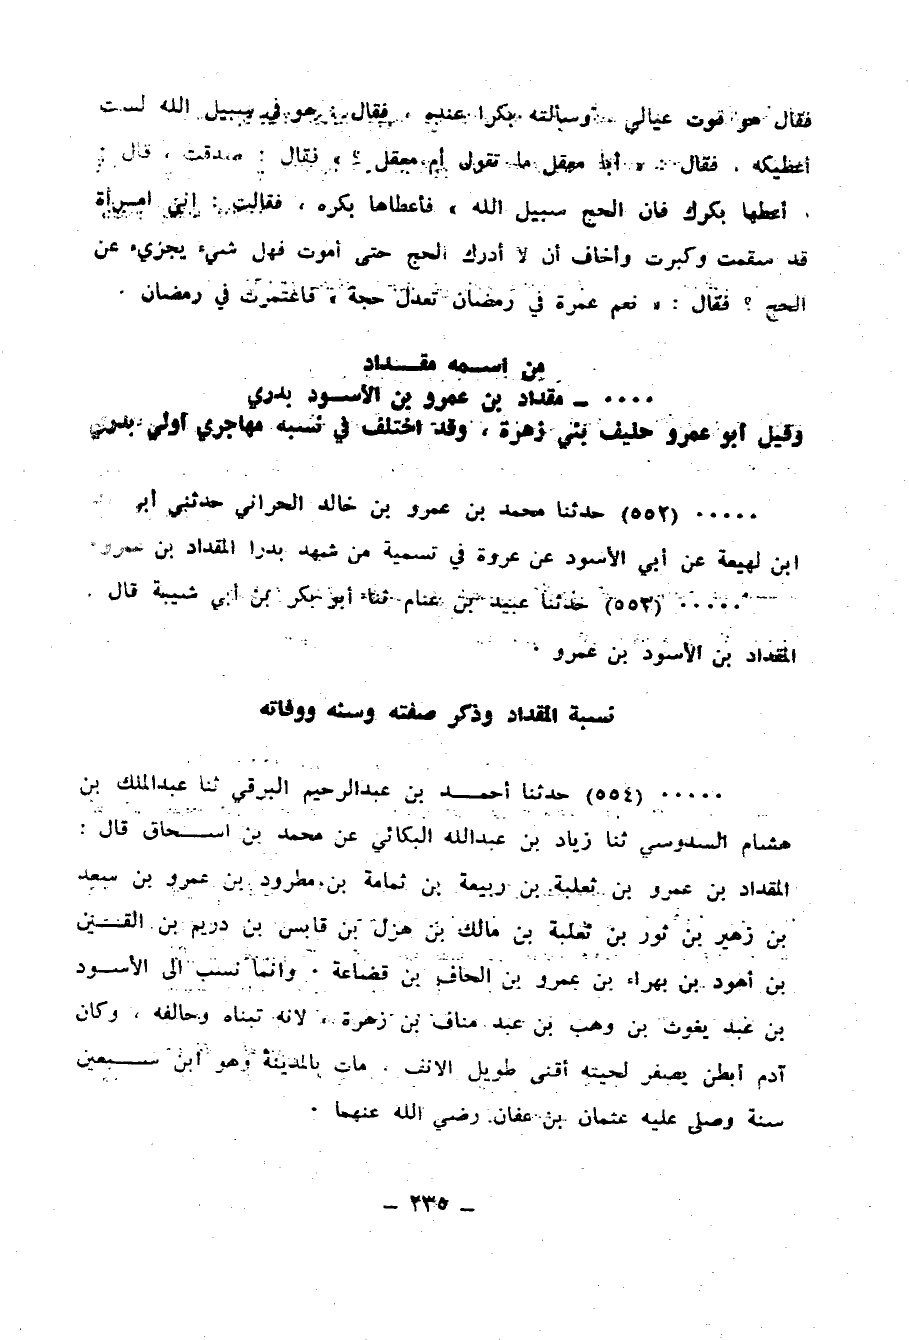 فقال هو قوت عيالي ، وسألته بكرا عنده ، فقال : هو في سبيل الله لست
أعطيكه . فقال : « أبا معقل ما تقول أم معقل ؟ » فقال : صدقت ، قال :
« أعطها بكرك فان الحج سبيل الله » فأعطاها بكره ، فقالت : إني امرأة
قد سقمت وكبرت وأخاف أن لا أدرك الحج حتى أموت فهل شيء يجزيء عن
الحج ؟ فقال : « نعم عمرة في رمضان تعدل حجة » فاعتمرت في رمضان .
من اسمه مقداد
٠٠٠٠ ــ مقداد بن عمرو بن الأسود بدري
وقيل أبو عمرو حليف بني زهرة ، وقد اختلف في نسبه مهاجري أولي بدري
٠٠٠٠٠ (٥٥٢) حدثنا محمد بن عمرو بن خالد الحراني حدثني أبي
ابن لهيعة عن أبي الأسود عن عروة في تسمية من شهد بدرا المقداد بن عمرو
٠٠٠٠٠ (٥٥٣) حدثنا عبيد بن غنام ثنا أبو بكر بن أبي شيبة قال .
المقداد بن الأسود بن عمرو .
نسبة المقداد وذكر صفته وسنه ووفاته
٠٠٠٠٠ (٥٥٤) حدثنا أحمد بن عبدالرحيم البرقي ثنا عبدالملك بن
هشام السدوسي ثنا زياد بن عبدالله البكائي عن محمد بن اسحاق قال :
المقداد بن عمرو بن ثعلبة بن ربيعة بن ثمامة بن مطرود بن عمرو بن سعد
بن زهير بن ثور بن ثعلبة بن مالك بن هزل بن قابس بن دريم بن القين
بن أهود بن بهراء بن عمرو بن الحاف بن قضاعة . وانما نسب الى الأسود
بن عبد يغوث بن وهب بن عبد مناف بن زهرة ، لانه تبناه وحالفه ، وكان
آدم أبطن يصفر لحيته أقنى طويل الانف . مات بالمدينة وهو ابن سبعين
سنة وصلى عليه عثمان بن عفان رضي الله عنهما .
ــ ٢٣٥ ــ